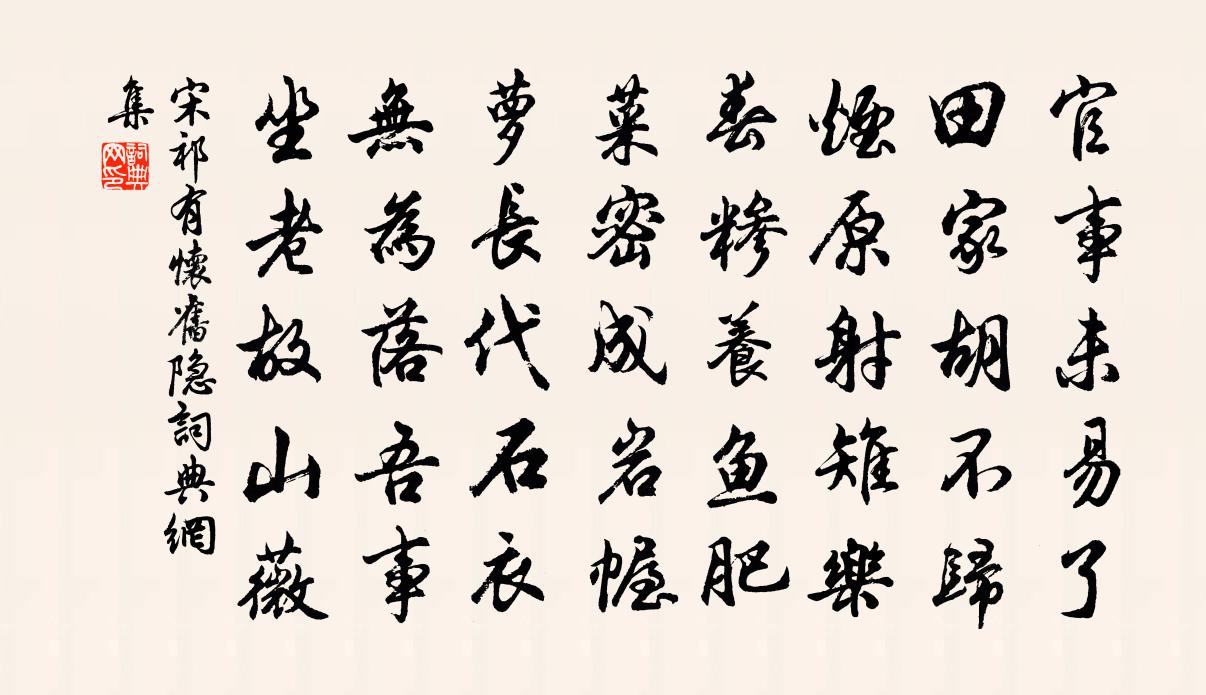 官事未易了
田家胡不歸
煙原射雉樂
春糝養魚肥
菓密成岩幄
萝長代石衣
無為落吾事
坐老故山薇
宋祁有懷舊隐詞典網
集
詞典網印